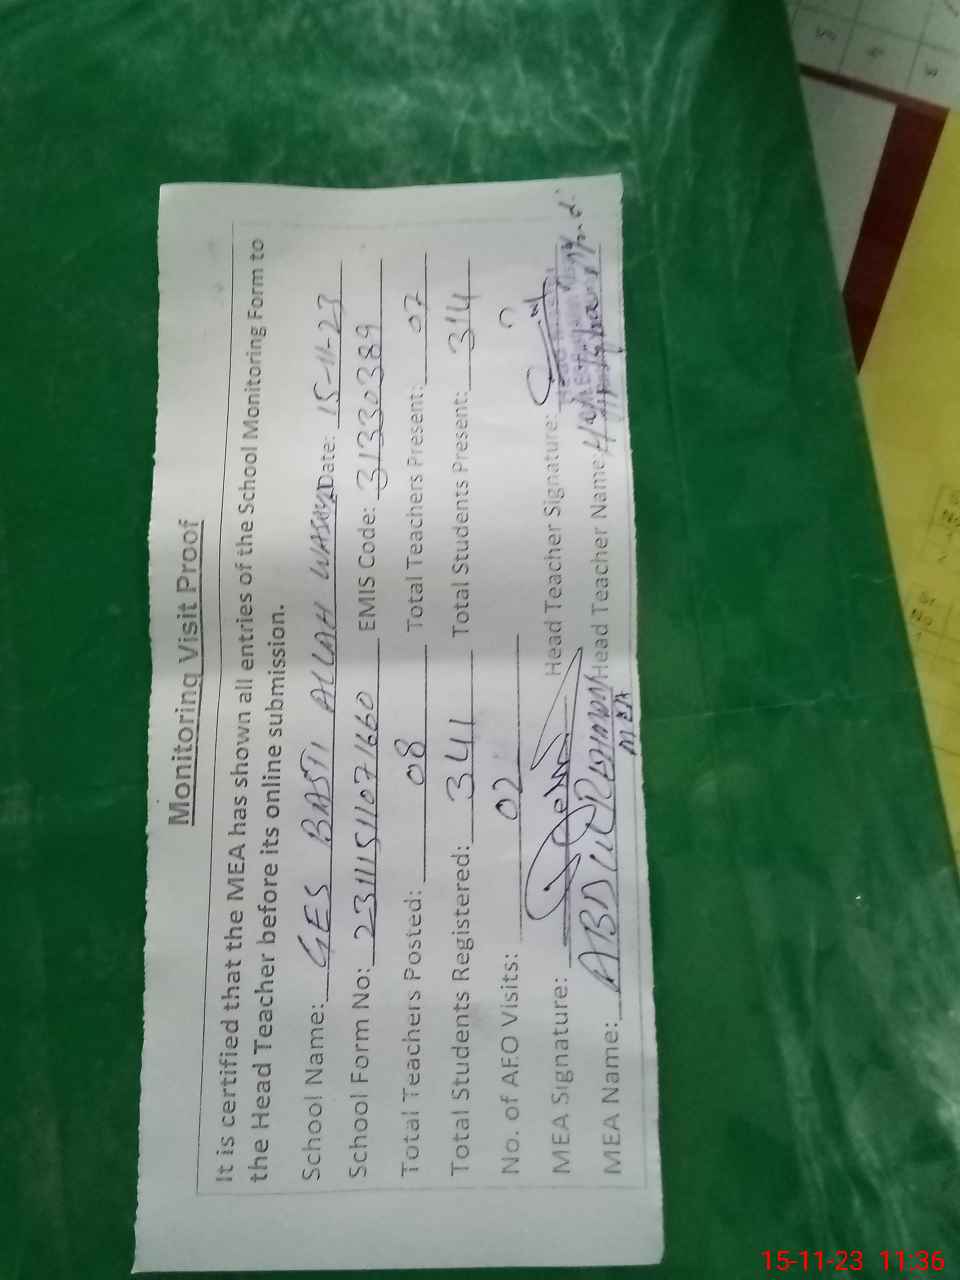 Monitoring Visit Proof
It is certified that the MEA has shown all entries of the School Monitoring Form to
the Head Teacher before its online submission.
School Name: GES BASTI ALLAH WASAYA Date: 15-11-23
School Form No: 23111511071660 EMIS Code: 31330389
Total Teachers Posted: 08 Total Teachers Present: 07
Total Students Registered: 341 Total Students Present: 314
No. of AEO Visits: 02
MEA Signature: Head Teacher Signature:
MEA Name: ABDUL REHMAN Head Teacher Name:
MEA
15-11-23 11:36